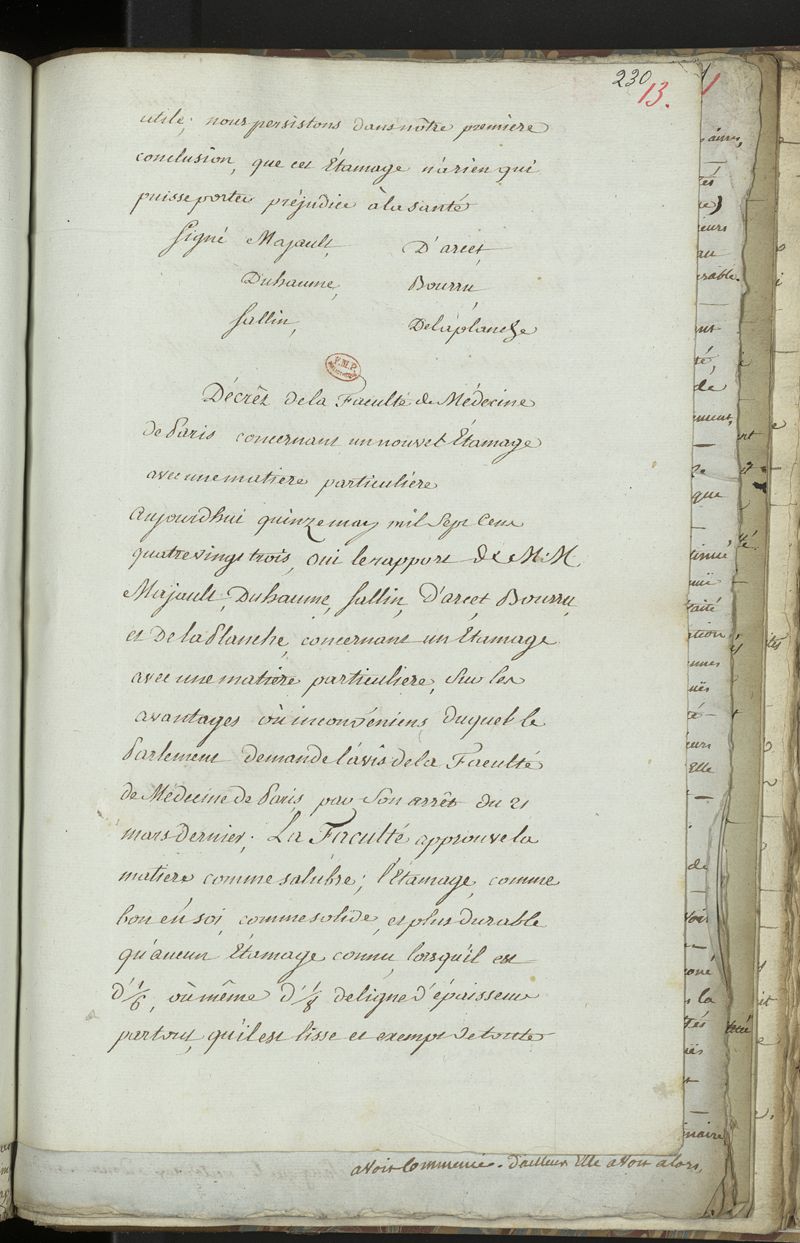 230
13.
utile; nous persistons dans nôtre premiere
conclusion, que cet Étamage n'a rien qui
puisse porter préjudice à la santé
Signé Majault, D'arcet,
Duhaume, Bourru,
Sallin, Delaplanche
Décrèt de la Faculté de Médecine
de Paris concernant un nouvel Étamage
avec une matiere particuliére
Aujourdhui quinze may mil Sept Cent
quatrevingt trois, Oui le rapport de M.M.
Majault, Duhaume, Sallin, D'arcet Bourru,
et De la Planche, concernant un Étamage
avec une matière particuliere, Sur les
avantages où inconvéniens duquel le
Parlement demande l'avis de la Faculté
de Médecine de Paris par Son arrêt du 21
mars dernier; La Faculté approuve la
matiere comme salubre; l'Étamage, comme
bon en soi, comme solide, et plus durable
qu'aucun Étamage connu, lorsqu'il est
d'1/6, où même d'1/8 de ligne d'épaisseur
partout, qu'il est lisse et exempt de toute
avoit Commencé. d'ailleurs Elle avoit alors,